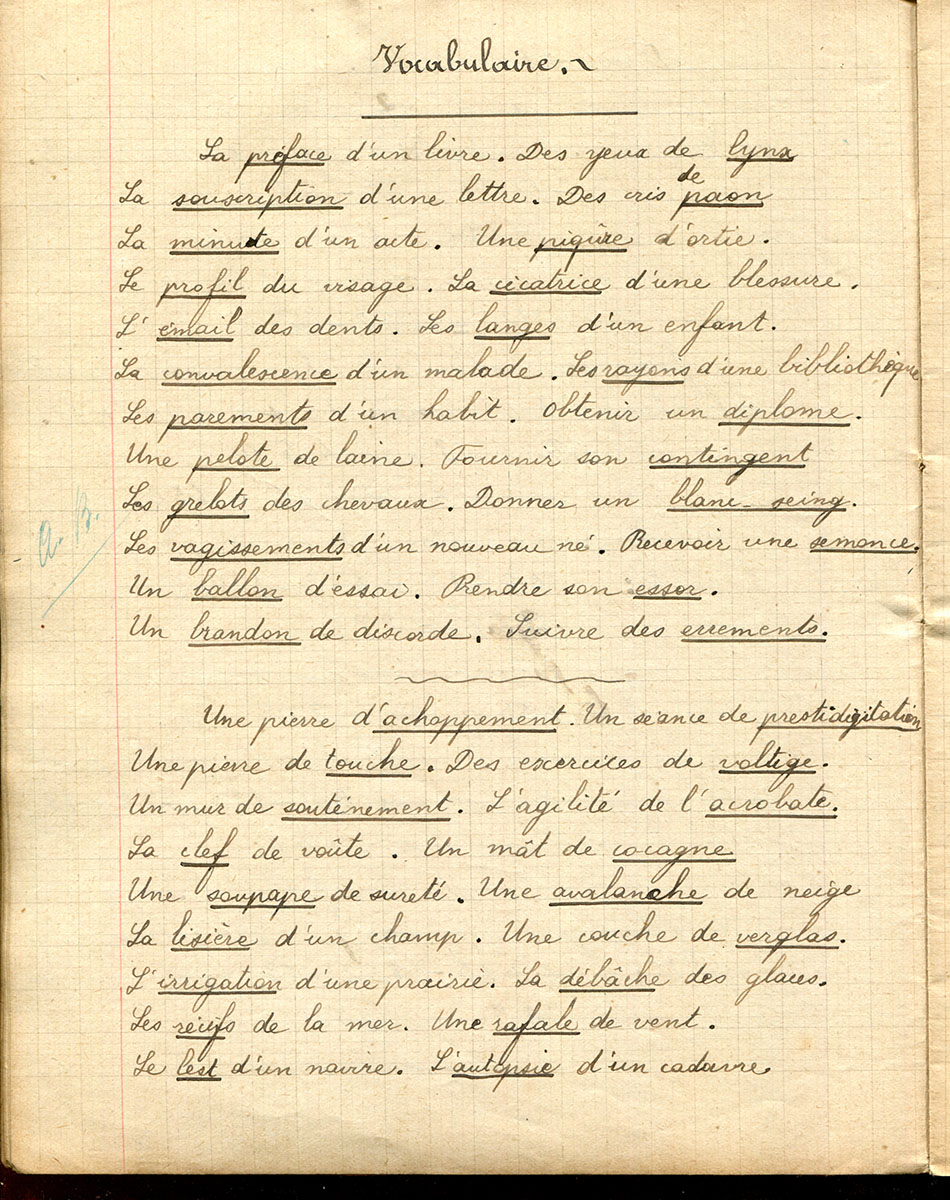 Vocabulaire.~
La préface d'un livre. Des yeux de lynx
La souscription d'une lettre. Des cris de paon
La minute d'un acte. Une piqûre d'ortie.
Le profil du visage. La cicatrice d'une blessure.
L'émail des dents. Les langes d'un enfant.
La convalescence d'un malade. Les rayons d'une bibliothèque
Les parements d'un habit. Obtenir un diplome.
Une pelote de laine. Fournir son contingent
Les grelots des chevaux. Donner un blanc-seing.
Les vagissements d'un nouveau né. Recevoir une semonce.
A.B.
Un ballon d'éssai. Prendre son essor.
Un brandon de discorde. Suivre des errements.
Une pierre d'achoppement. Un séance de prestidigitation
Une pierre de touche. Des exercices de voltige.
Un mur de souténement. L'agilité de l'acrobate.
La clef de voûte. Un mât de cocagne
Une soupape de sureté. Une avalanche de neige
La lisière d'un champ. Une couche de verglas.
L'irrigation d'une prairie. La débâche des glaces.
Les récifs de la mer. Une rafale de vent.
Le lest d'un navire. L'autopsie d'un cadavre